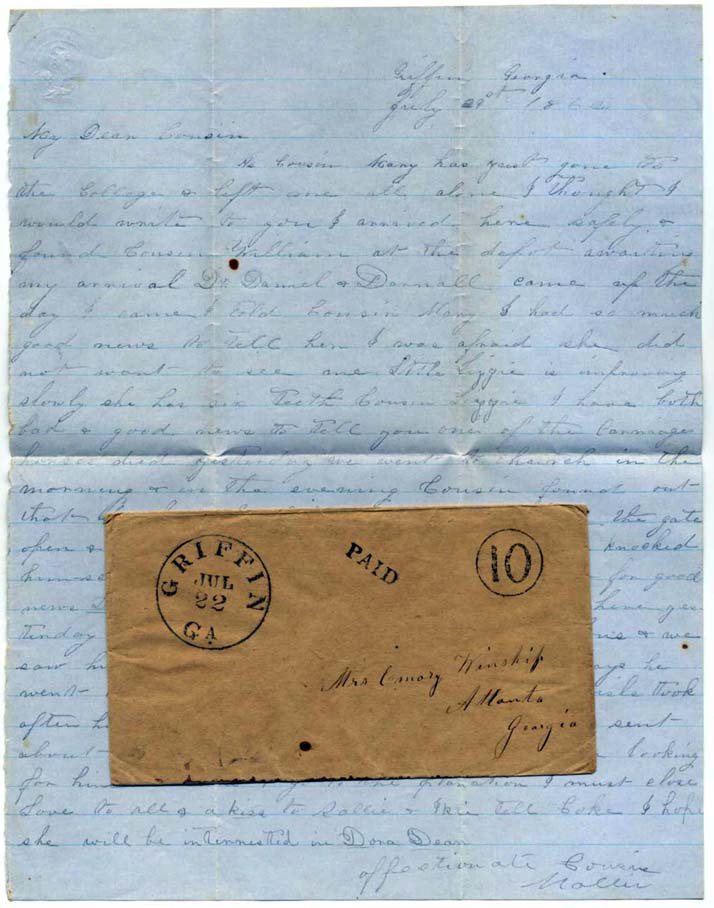 Griffin Georgia
July st 186
My Dear Cousin
As Cousin Mary has just gone to
the College & left me all alone I thought I
would write to you I arrived here safely &
found Cousin William at the depot awaiting
my arrival Dr Daniel & Darnall came up the
day I came I told Cousin Mary I had so much
good news to tell her I was afraid she did
not want to see me Little Lizzie is improving
slowly she has six teeth Cousin Lizzie I have both
bad & good news to tell you one of the Carriage
horses died yesterday we went to church in the
morning & in the evening Cousin found out
that the gate
open & knocked
for good
news have yes
terday & we
saw he
went took
after h sent
about looking
for him to the plantation I must close
Love to all & a kiss to Sallie & tell Coke I hope
she will be interrested in Dora Dean
affectionate Cousin
Mollie
GRIFFIN
JUL
22
GA
PAID
10
Mrs Emory Winship
Atlanta
Georgia